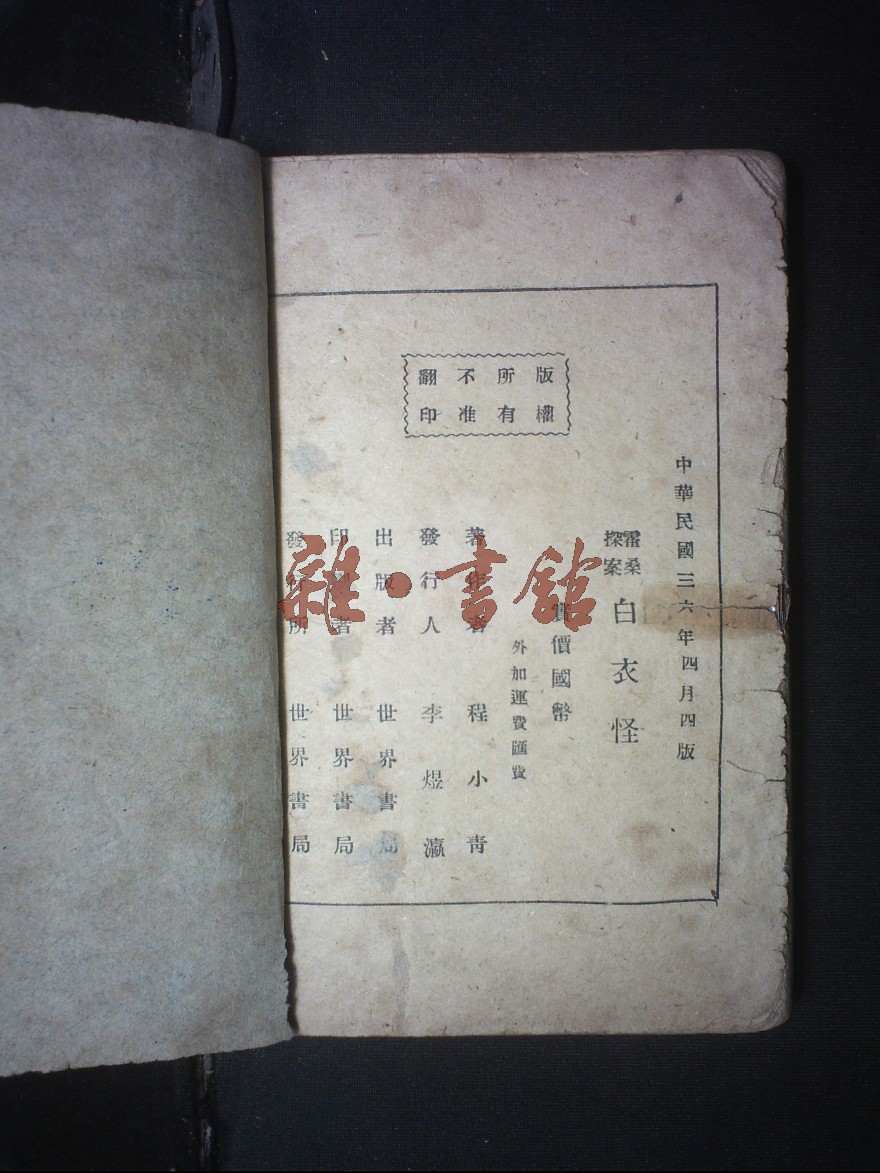 中華民國三六年四月四版
霍桑探案 白衣怪
實價國幣
外加運費匯費
著作者 程小青
發行人 李煜瀛
出版者 世界書局
印刷者 世界書局
發行所 世界書局
版權所有
不准翻印
雜·書館